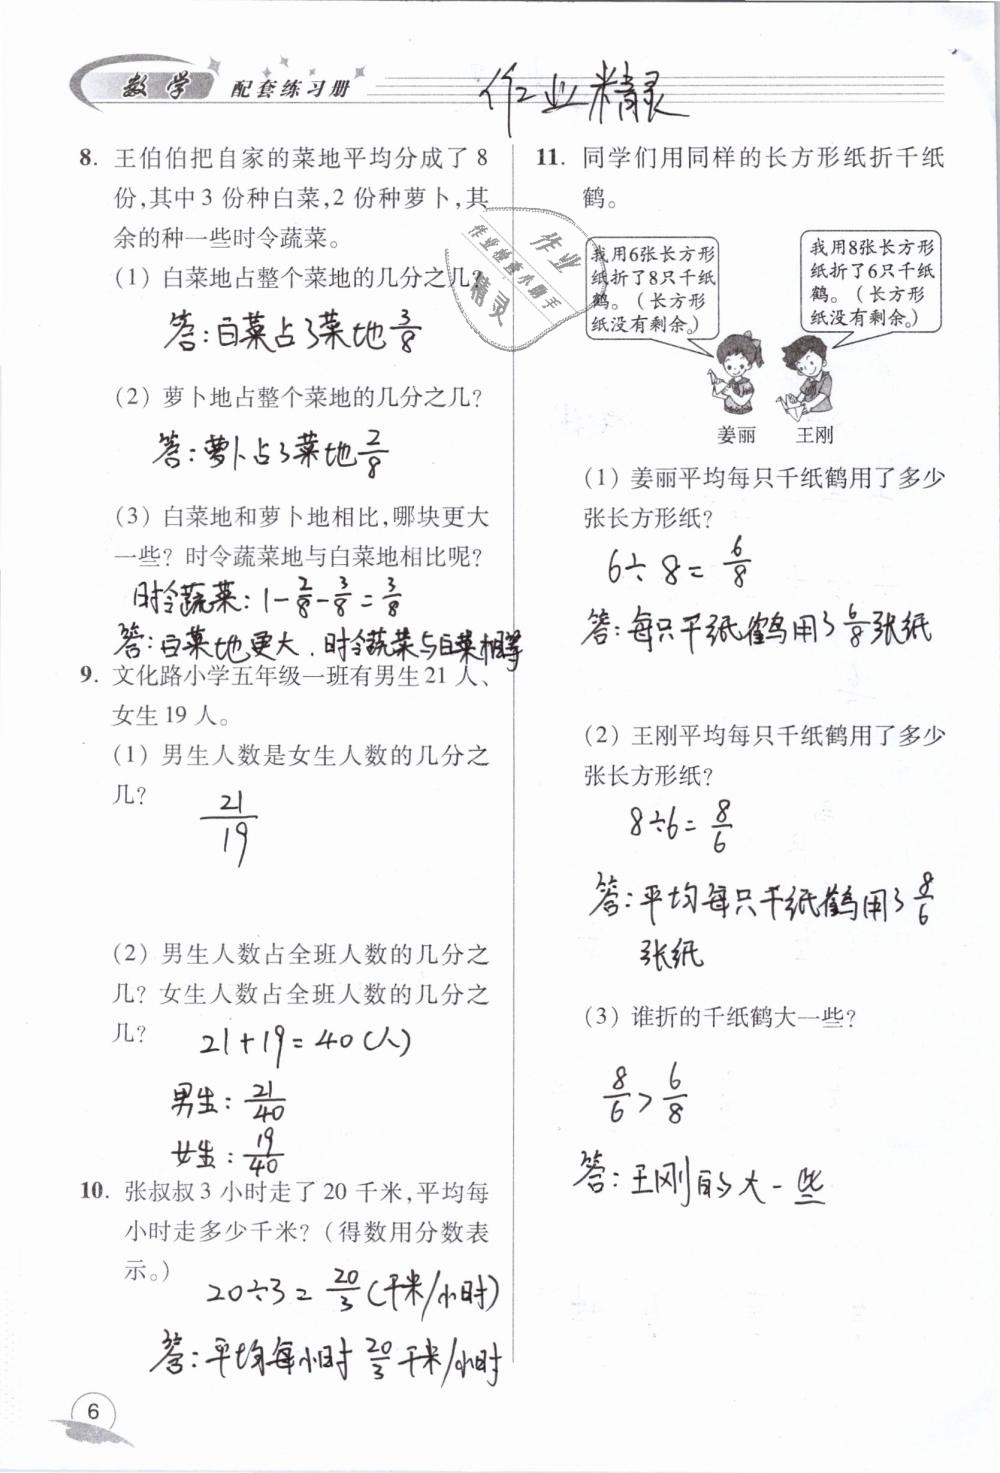 数学 配套练习册
作业精灵
8. 王伯伯把自家的菜地平均分成了8
份,其中3份种白菜,2份种萝卜,其
余的种一些时令蔬菜。
(1) 白菜地占整个菜地的几分之几?
答:白菜占了菜地3/8
(2) 萝卜地占整个菜地的几分之几?
答:萝卜占了菜地2/8
(3) 白菜地和萝卜地相比,哪块更大
一些? 时令蔬菜地与白菜地相比呢?
时令蔬菜:1-2/8-3/8=3/8
答:白菜地更大.时令蔬菜与白菜相等
9. 文化路小学五年级一班有男生21人、
女生19人。
(1) 男生人数是女生人数的几分之
几?
21/19
(2) 男生人数占全班人数的几分之
几? 女生人数占全班人数的几分之
几?
21+19=40(人)
男生:21/40
女生:19/40
10. 张叔叔3小时走了20千米,平均每
小时走多少千米? (得数用分数表
示。)
20÷3=20/3(千米/小时)
答:平均每小时20/3千米/小时
6
作业
作业检查小助手
精灵
11. 同学们用同样的长方形纸折千纸
鹤。
我用6张长方形
纸折了8只千纸
鹤。(长方形
纸没有剩余。)
我用8张长方形
纸折了6只千纸
鹤。(长方形
纸没有剩余。)
姜丽 王刚
(1) 姜丽平均每只千纸鹤用了多少
张长方形纸?
6÷8=6/8
答:每只千纸鹤用了6/8张纸
(2) 王刚平均每只千纸鹤用了多少
张长方形纸?
8÷6=8/6
答:平均每只千纸鹤用了8/6
张纸
(3) 谁折的千纸鹤大一些?
8/6>6/8
答:王刚的大一些